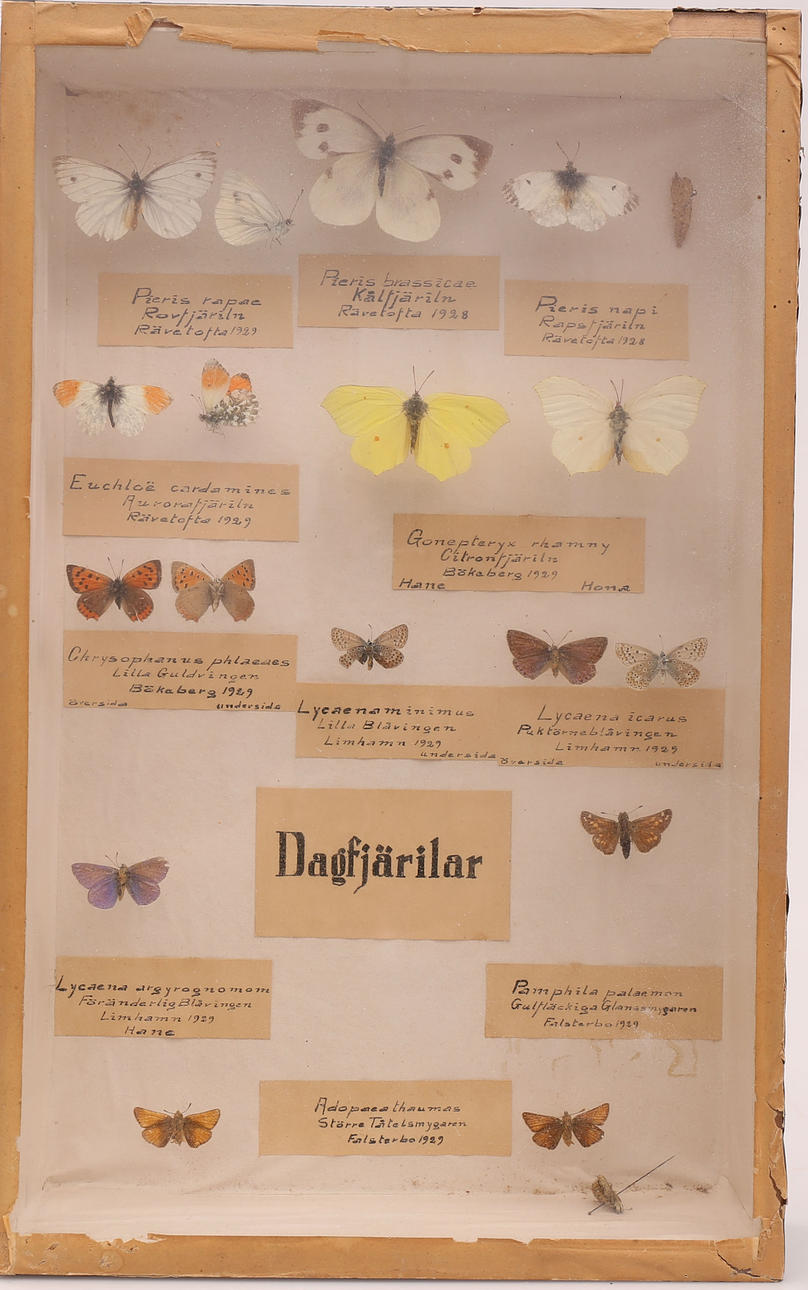 Pieris rapae
Rovfjäriln
Rävetofta 1929
Pieris brassicae
Kålfjäriln
Rävetofta 1928
Pieris napi
Rapsfjäriln
Rävetofta 1928
Euchloë cardamines
Aurorafjäriln
Rävetofta 1929
Gonepteryx rhamny
Citronfjäriln
Bökeberg 1929
Hane Hona
Chrysophanus phlaeaes
Lilla Guldvingen
Bökeberg 1929
översida undersida
Lycaena minimus
Lilla Blåvingen
Limhamn 1929
undersida
Lycaena icarus
Puktörneblåvingen
Limhamn 1929
översida undersida
Dagfjärilar
Lycaena argyrognomom
Föränderlig Blåvingen
Limhamn 1929
Hane
Pamphila palaemon
Gulfläckiga Glanssmygaren
Falsterbo 1929
Adopaea thaumas
Större Tåtelsmygaren
Falsterbo 1929